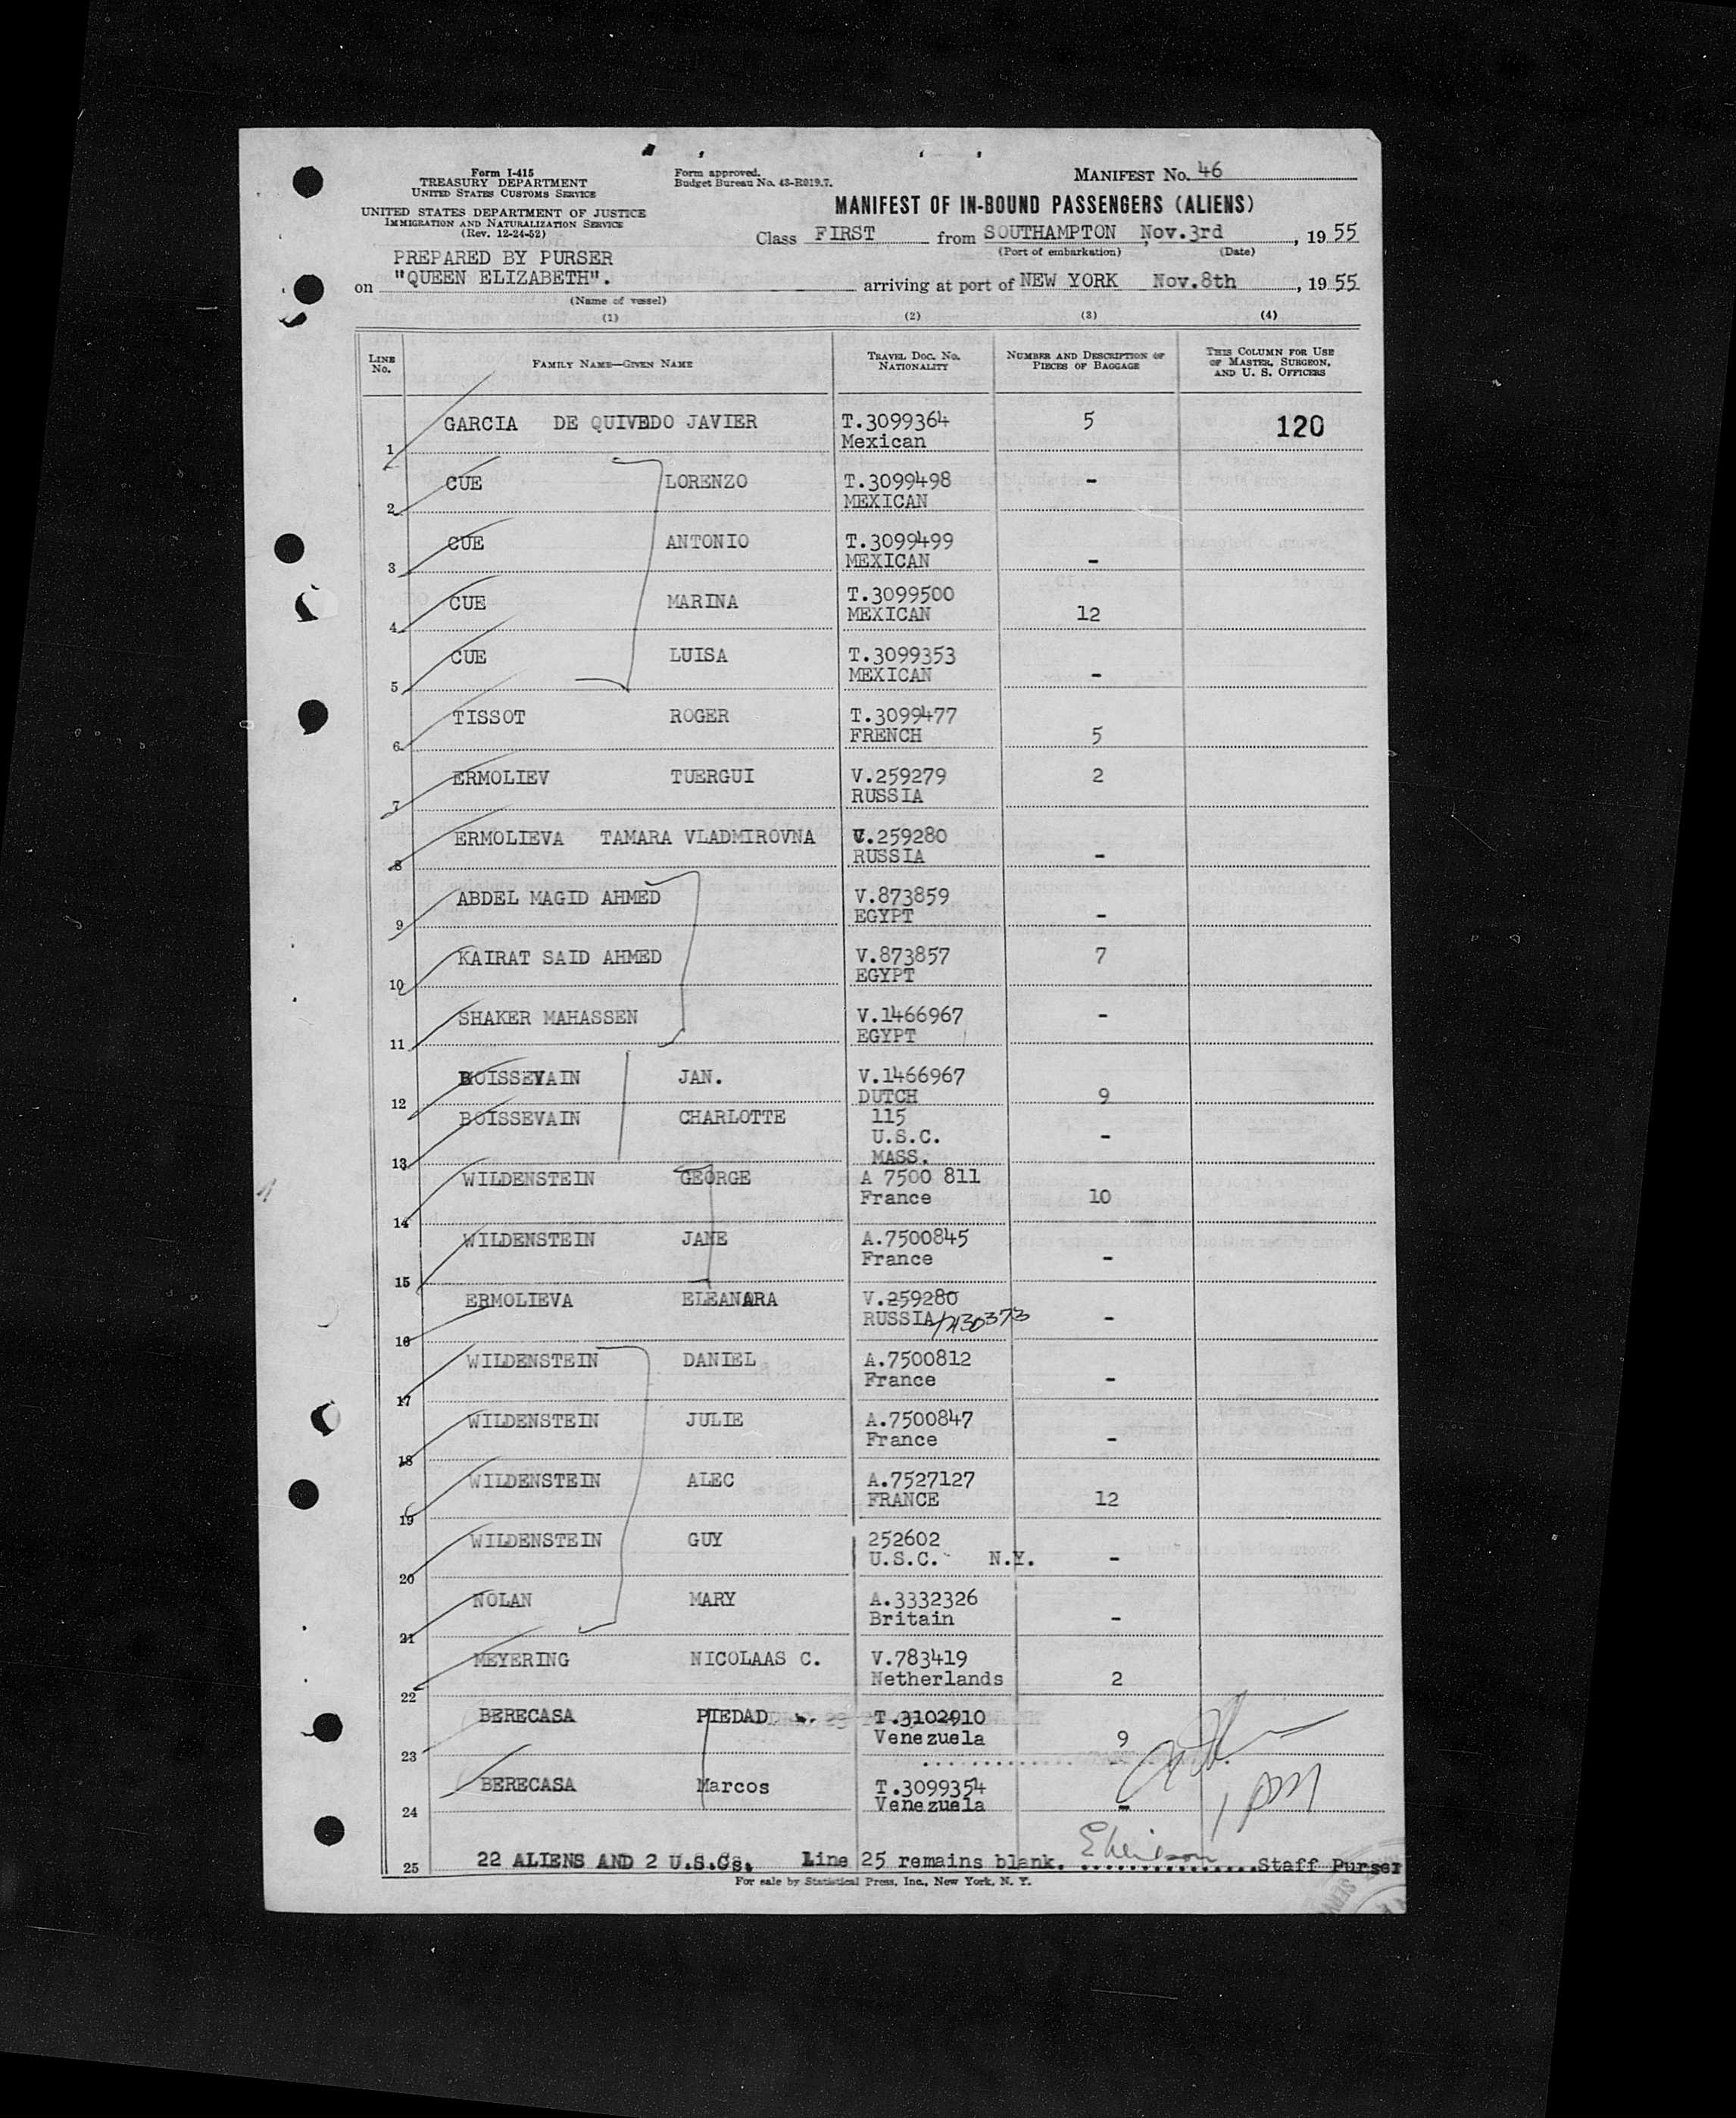 Form I-415
TREASURY DEPARTMENT
UNITED STATES CUSTOMS SERVICE
UNITED STATES DEPARTMENT OF JUSTICE
IMMIGRATION AND NATURALIZATION SERVICE
(Rev. 12-24-52)
Form approved.
Budget Bureau No. 43-R019.7.
MANIFEST No. 46
MANIFEST OF IN-BOUND PASSENGERS (ALIENS)
Class FIRST from SOUTHAMPTON, Nov.3rd, 1955
(Port of embarkation) (Date)
PREPARED BY PURSER
on "QUEEN ELIZABETH". arriving at port of NEW YORK Nov.8th, 1955
(Name of vessel)
(1) (2) (3) (4)
LINE No. FAMILY NAME—GIVEN NAME TRAVEL DOC. No. NATIONALITY NUMBER AND DESCRIPTION OF PIECES OF BAGGAGE THIS COLUMN FOR USE OF MASTER, SURGEON, AND U. S. OFFICERS
1 GARCIA DE QUIVEDO JAVIER T.3099364 Mexican 5 120
2 CUE LORENZO T.3099498 MEXICAN -
3 CUE ANTONIO T.3099499 MEXICAN -
4 CUE MARINA T.3099500 MEXICAN 12
5 CUE LUISA T.3099353 MEXICAN -
6 TISSOT ROGER T.3099477 FRENCH 5
7 ERMOLIEV TUERGUI V.259279 RUSSIA 2
8 ERMOLIEVA TAMARA VLADMIROVNA V.259280 RUSSIA -
9 ABDEL MAGID AHMED V.873859 EGYPT -
10 KAIRAT SAID AHMED V.873857 EGYPT 7
11 SHAKER MAHASSEN V.1466967 EGYPT -
12 BOISSEVAIN JAN. V.1466967 DUTCH 9
13 BOISSEVAIN CHARLOTTE 115 U.S.C. MASS. -
14 WILDENSTEIN GEORGE A 7500 811 France 10
15 WILDENSTEIN JANE A.7500845 France -
16 ERMOLIEVA ELEANARA V.259280 RUSSIA -
17 WILDENSTEIN DANIEL A.7500812 France -
18 WILDENSTEIN JULIE A.7500847 France -
19 WILDENSTEIN ALEC A.7527127 FRANCE 12
20 WILDENSTEIN GUY 252602 U.S.C. N.Y. -
21 NOLAN MARY A.3332326 Britain -
22 MEYERING NICOLAAS C. V.783419 Netherlands 2
23 BERECASA PIEDAD T.3102910 Venezuela 9
24 BERECASA Marcos T.3099354 Venezuela -
25 22 ALIENS AND 2 U.S.Cs. Line 25 remains blank. Staff Purser
For sale by Statistical Press, Inc., New York, N. Y.